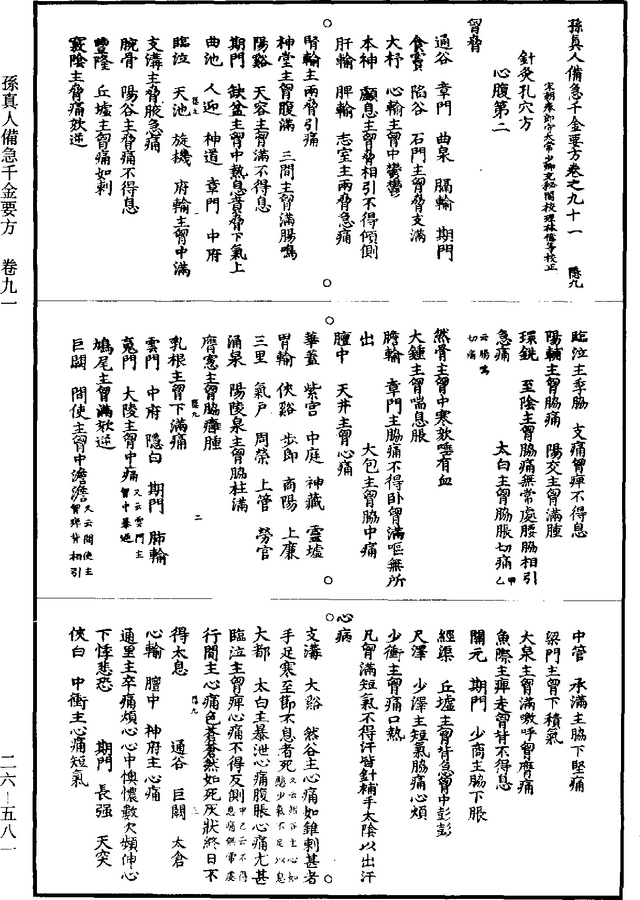 孫真人備急千金要方卷之九十一 隱九
宋朝奉郎守太常少卿充秘閣校理林億等校正
針灸孔穴方
心腹第二
胷脅
通谷 章門 曲泉 膈輸 期門
食竇 陷谷 石門主胷脅支滿
大杼 心輸主胷中鬱鬱
本神 顱息主胷脅相引不得傾側
肝輸 脾輸 志室主兩脅急痛
腎輸主兩脅引痛
神堂主胷腹滿 三間主胷滿腸鳴
陽谿 天容主胷滿不得息
期門 缺盆主胷中熱息賁脅下氣上
曲池 人迎 神道 章門 中府
臨泣 天池 旋機 府輸主胷中滿
支溝主脅腋急痛
腕骨 陽谷主脅痛不得息
豐隆 丘墟主胷痛如刺
竅陰主脅痛欬逆
臨泣主季脇 支痛胷痺不得息
陽輔主胷脇痛 陽交主胷滿腫
環銚 至陰主胷脇痛無常處腰脇相引
急痛 太白主胷脇脹切痛甲乙
云腸鳴切痛
然骨主胷中寒欬唾有血
大鍾主胷喘息脹
膽輸 章門主脇痛不得卧胷滿嘔無所
出 大包主胷脇中痛
膻中 天井主胷心痛
華蓋 紫宮 中庭 神藏 靈墟
胃輸 俠谿 步郎 商陽 上廉
三里 氣戶 周榮 上管 勞宮
涌泉 陽陵泉主胷脇柱滿
膺窻主胷脇癰腫
乳根主胷下滿痛
雲門 中府 隱白 期門 肺輸
䰟門 大陵主胷中痛又云雲門主胷中暴逆
鳩尾主胷滿欬逆
巨闕 間使主胷中澹澹又云間使主胷痺背相引
中管 承滿主脇下堅痛
梁門主胷下積氣
大泉主胷滿嗽呼胷膺痛
魚際主痺走胷背不得息
關元 期門 少商主脇下脹
經渠 丘墟主胷背急胷中彭彭
尺澤 少澤主短氣脇痛心煩
少衝主胷痛口熱
凡胷滿短氣不得汗皆針補手太陰以出汗
心病
支溝 大谿 然谷主心痛如錐刺甚者
手足寒至節不息者死
大都 太白主暴泄心痛腹脹心痛尤甚
臨泣主胷痺心痛不得反側
行間主心痛色蒼蒼然如死灰狀終日不
得太息 通谷 巨闕 太倉
心輸 膻中 神府主心痛
通里主卒痛煩心心中懊憹數欠頻伸心
下悸悲恐 期門 長强 天突
俠白 中衝主心痛短氣
孫真人備急千金要方 卷九一
二六—五八一